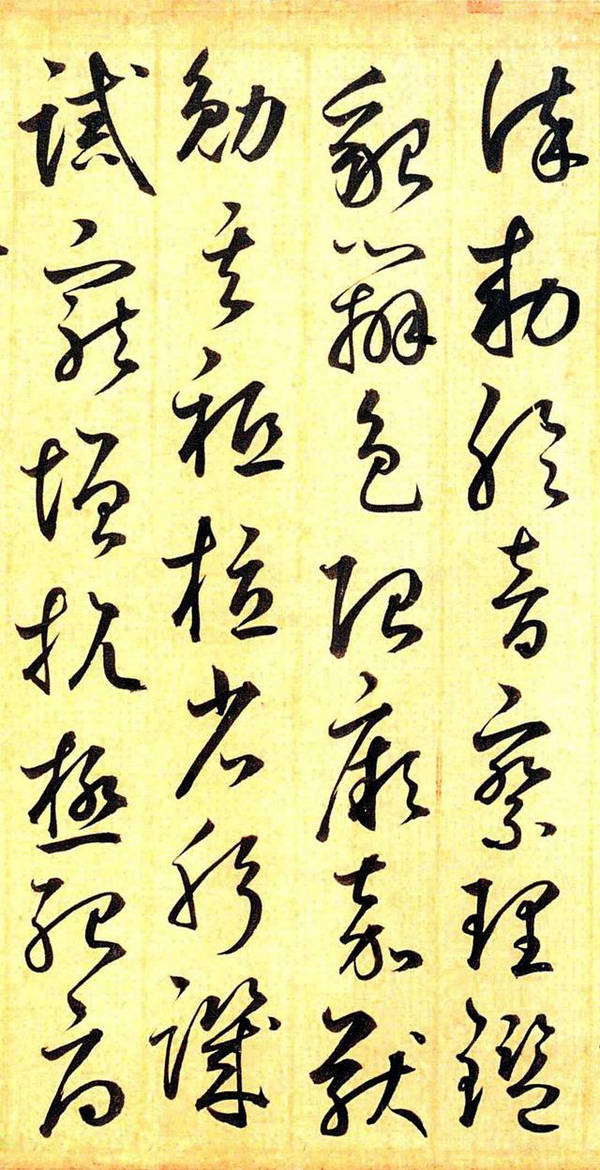 謹勅聆音察理鑑
貌辨色貽厥嘉猷
勉其祗植省躬譏
誡寵增抗極殆辱